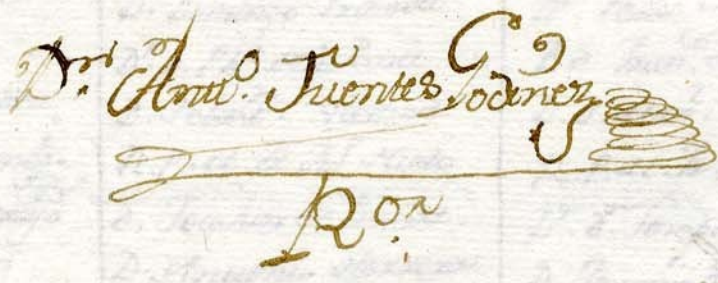 Dn. Antto. Fuentes Godinez
Ron.